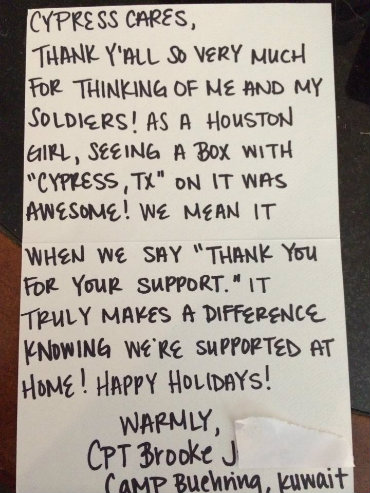 CYPRESS CARES,
THANK Y'ALL SO VERY MUCH
FOR THINKING OF ME AND MY
SOLDIERS! AS A HOUSTON
GIRL, SEEING A BOX WITH
"CYPRESS, TX" ON IT WAS
AWESOME! WE MEAN IT
WHEN WE SAY "THANK YOU
FOR YOUR SUPPORT." IT
TRULY MAKES A DIFFERENCE
KNOWING WE'RE SUPPORTED AT
HOME! HAPPY HOLIDAYS!
WARMLY,
CPT Brooke J
CAMP Buehring, Kuwait